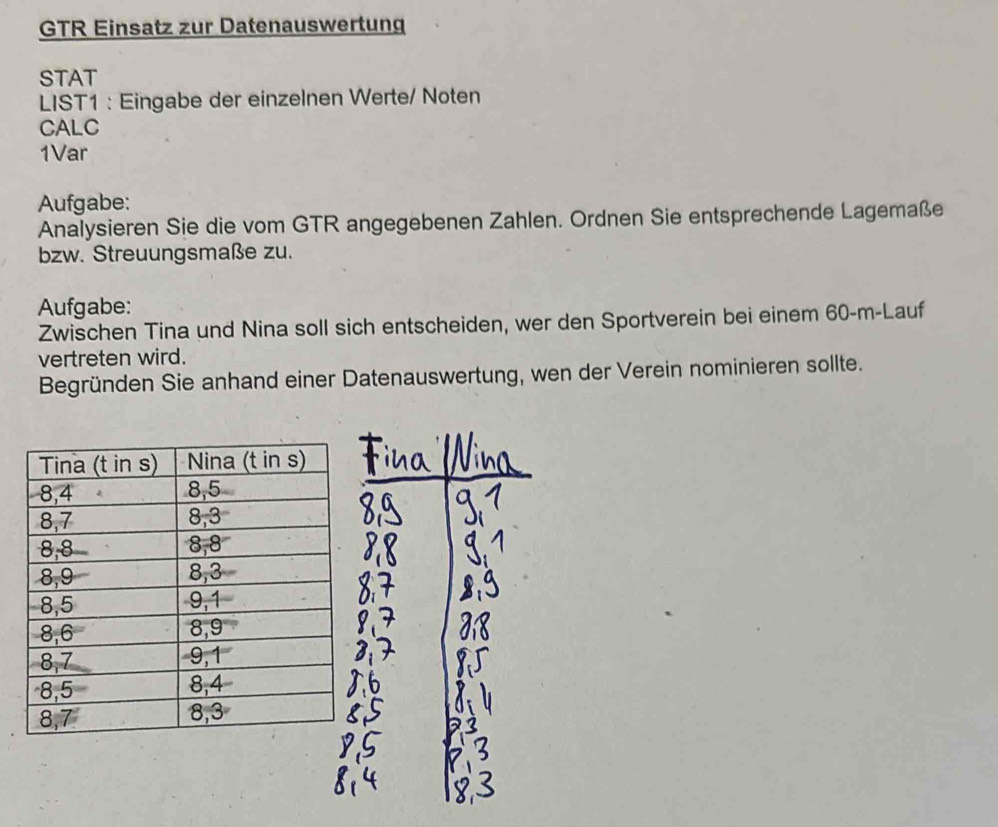 GTR Einsatz zur Datenauswertung
STAT
LIST1 : Eingabe der einzelnen Werte/ Noten
CALC
1Var
Aufgabe:
Analysieren Sie die vom GTR angegebenen Zahlen. Ordnen Sie entsprechende Lagemaße
bzw. Streuungsmaße zu.
Aufgabe:
Zwischen Tina und Nina soll sich entscheiden, wer den Sportverein bei einem 60-m-Lauf
vertreten wird.
Begründen Sie anhand einer Datenauswertung, wen der Verein nominieren sollte.
Tina (t in s) Nina (t in s)
8,4 8,5
8,7 8,3
8,8 8,8
8,9 8,3
8,5 9,1
8,6 8,9
8,7 9,1
8,5 8,4
8,7 8,3
Tina Nina
8,9 9,1
8,8 9,1
8,7 8,9
8,7 8,8
8,7 8,5
8,6 8,4
8,5 8,3
8,5 8,3
8,4 8,3